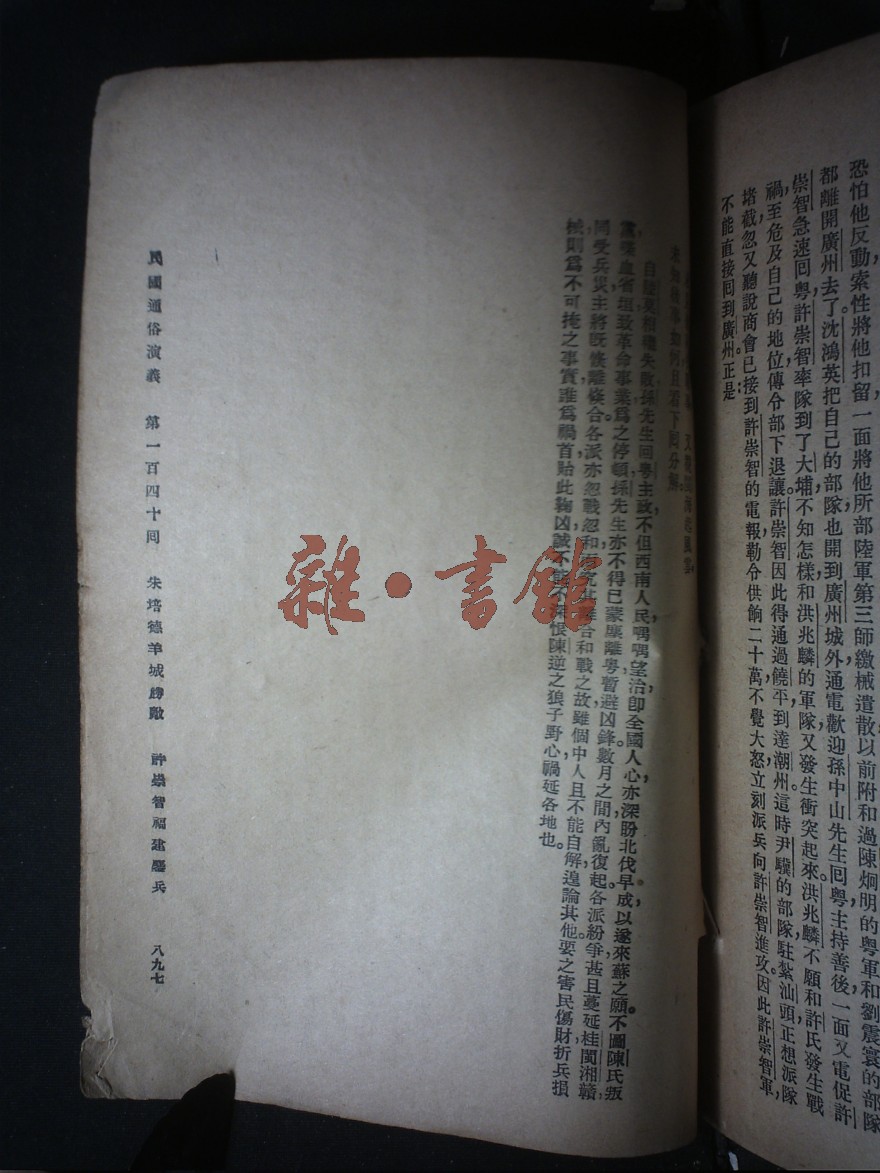 恐怕他反動索性將他扣留一面將他所部陸軍第三師繳械遣散以前附和過陳炯明的粵軍和劉震寰的部隊
都離開廣州去了。沈鴻英把自己的部隊也開到廣州城外通電歡迎孫中山先生回粵主持善後一面又電促許
崇智急速回粵許崇智率隊到了大埔不知怎樣和洪兆麟的軍隊又發生衝突起來。洪兆麟不願和許氏發生戰
禍至危及自己的地位傳令部下退讓許崇智因此得通過饒平到達潮州這時尹驥的部隊駐紮汕頭正想派隊
堵截忽又聽說商會已接到許崇智的電報勒令供餉二十萬不覺大怒立刻派兵向許崇智進攻。因此許崇智軍,
不能直接回到廣州。正是:
未知後事如何且看下回分解。
自陸莫相繼失敗孫先生回粵主政不但西南人民喁喁望治即全國人心亦深盼北伐早成以遂來蘇之願。不圖陳氏叛
黨喋血省垣致革命事業為之停頓孫先生亦不得已蒙塵離粵暫避凶鋒。數月之間內亂復起各派紛爭甚且蔓延桂閩湘贛,
同受兵災主將既
離條合各派亦忽戰忽和
合和戰之故雖個中人且不能自解遑論其他。要之害民傷財折兵損
械則為不可掩之事實誰為禍首貽此鞠凶誠不能不深恨陳逆之狼子野心禍延各地也。
民國通俗演義 第一百四十回 朱培德羊城
敵 許崇智福建鏖兵 八九七
雜·書館